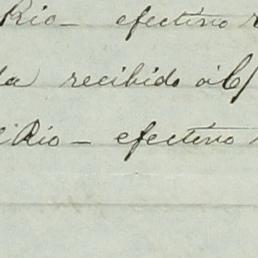 Rio — efectivo
da recibido a
Rio — efectivo